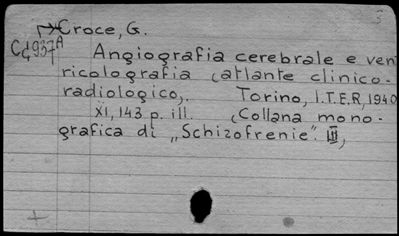 Croce, G.
Cd 937 A
Angiografia cerebrale e ven
ricolografia (atlante clinico-
radiologico,. Torino, I.T.E.R, 1940
XI, 143 p. ill. (Collana mono-
grafica di „Schizofrenie". III,